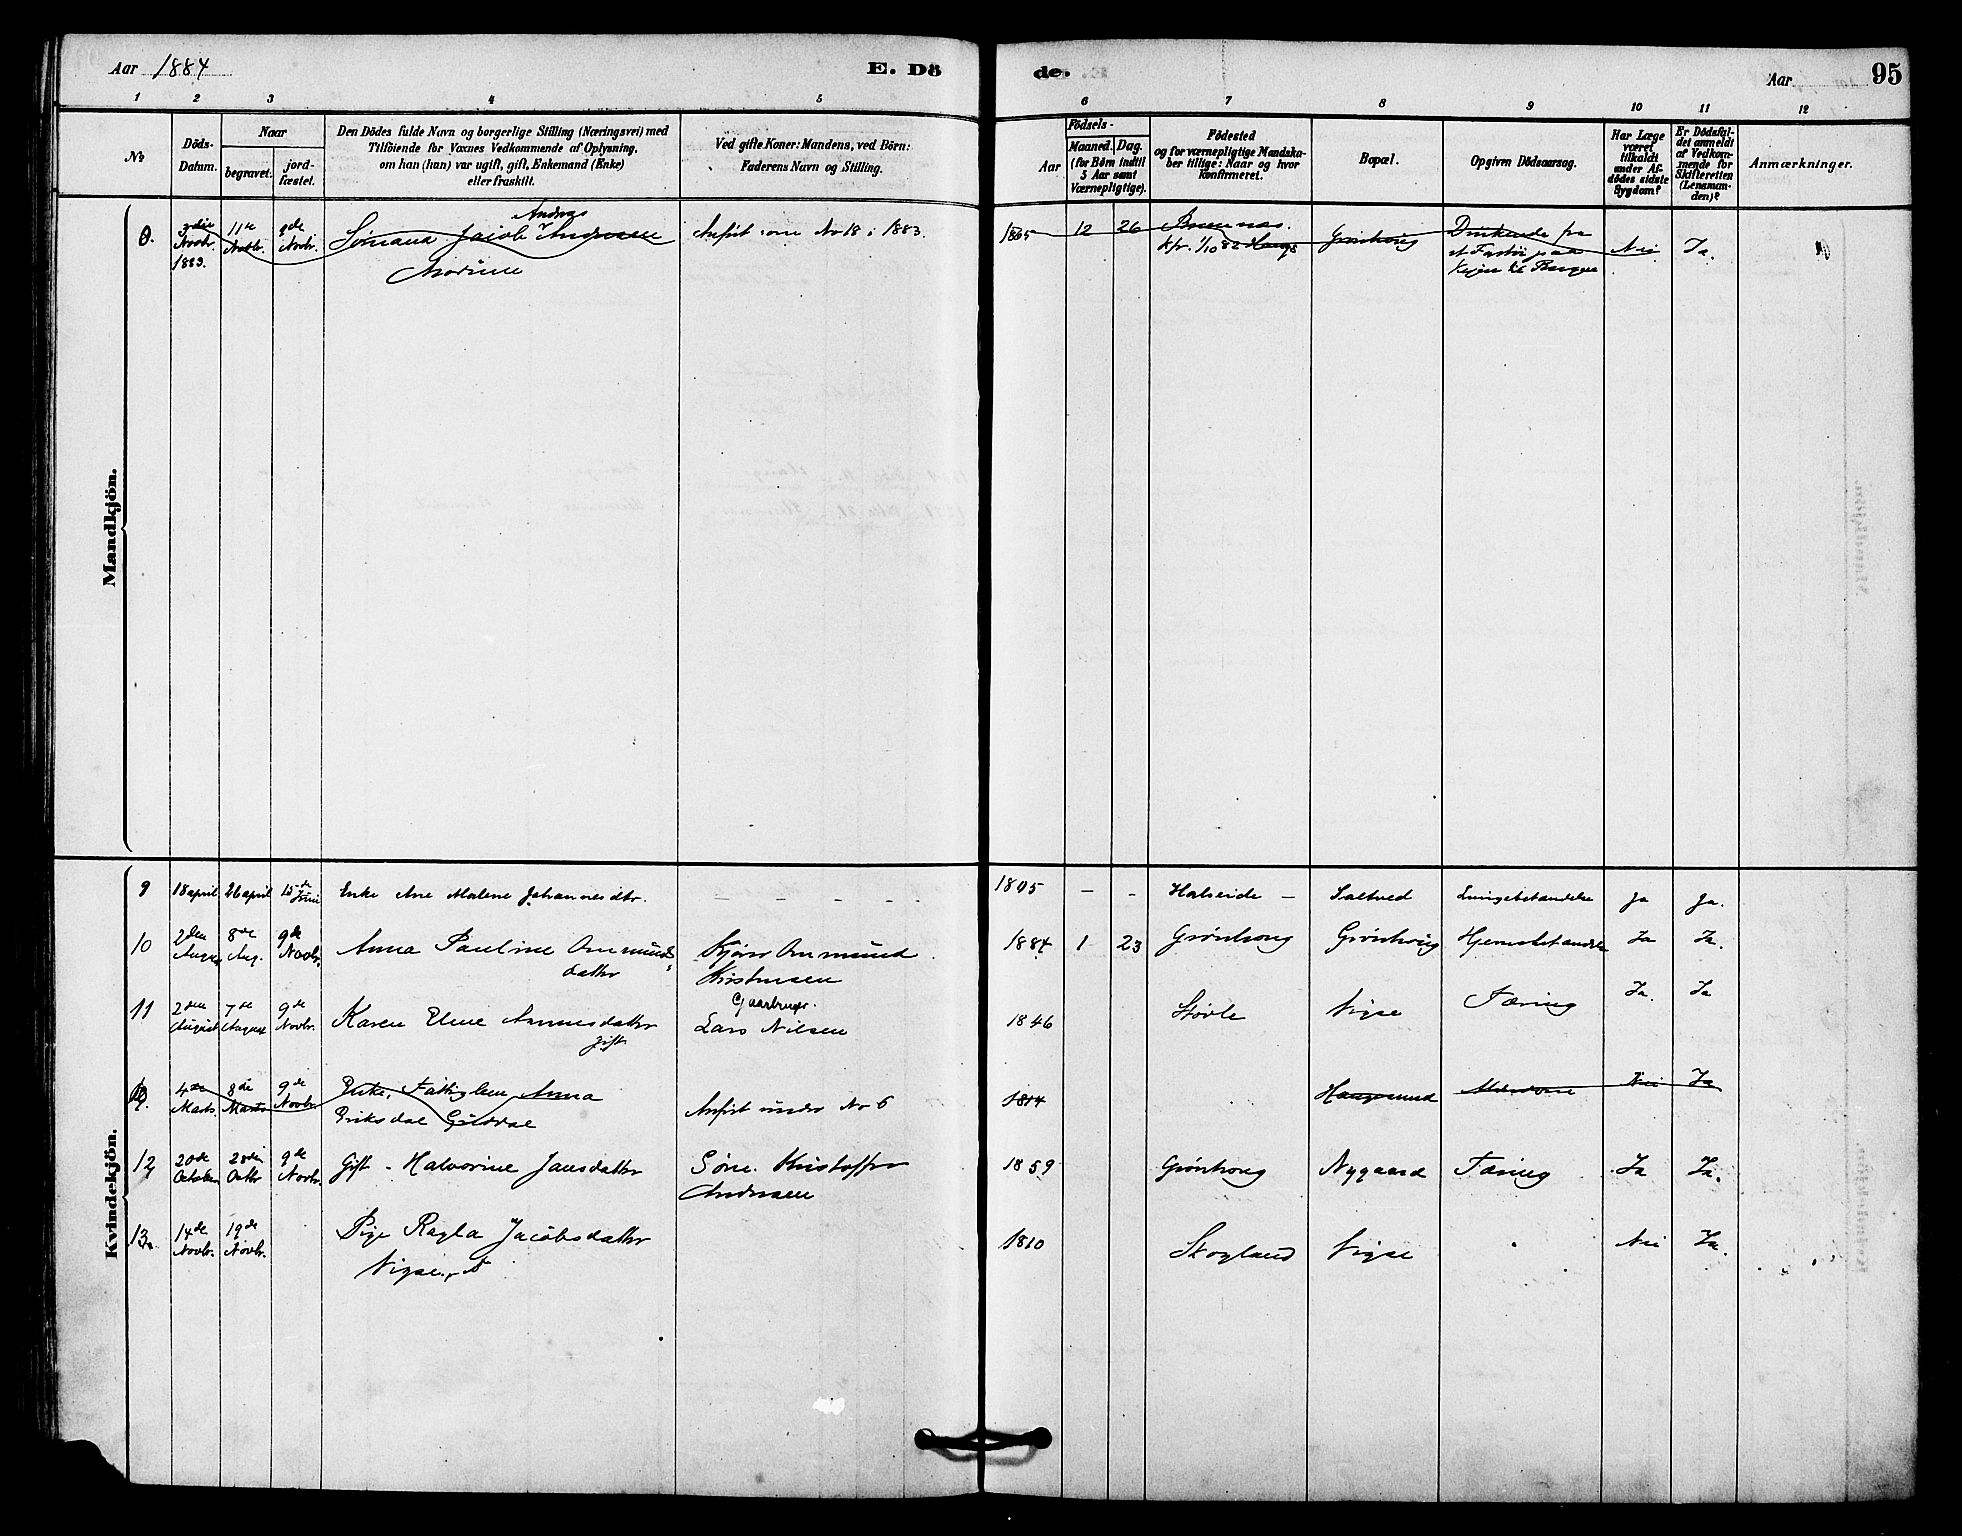 Aar 1884
E. Dö
de.
Aar
95
1 2 3 4 5 6 7 8 9 10 11 12
No
Döds-
Datum.
Naar
begravet.
jord-
fæstet.
Den Dödes fulde Navn og borgerlige Stilling (Næringsvei) med
Tilföiende for Voxnes Vedkommende af Oplysning,
om han (hun) var ugift, gift, Enkemand (Enke)
eller fraskilt.
Ved gifte Koner: Mandens, ved Börn:
Faderens Navn og Stilling.
Födsels-
Aar
Maaned. Dag.
(for Börn indtil
5 Aar samt
Værnepligtige).
Födested
og for værnepligtige Mandska-
ber tillige: Naar og hvor
Konfirmeret.
Bopæl.
Opgiven Dödsaarsag.
Har Læge
været
tilkaldt
under Af-
dödes sidste
Sygdom?
Er Dödsfal-
det anmeldt
af Vedkom-
mende for
Skifteretten
(Lensman-
den)?
Anmærkninger.
Mandkjön.
3die Novbr. 1883. 11te Novbr. Novbr.
Andreas
Sömand Jacob Andreasen
Anført som No 18 i 1883.
1865 12 26
kfr. 1/10 82
Grönhoug
Druknede fra
et Fartöi paa
Vejen til Bergen
Nei Ja.
Kvindekjön.
9 18 april 26 april 15de Juni Enke Ane Malene Johannesdtr. – – – – 1805 – – Halseide – Saltved Lungebetændelse Ja Ja.
10 2den August 8de Aug. 9de Novbr. Anna Pauline Ommunds-
datter
Ommund
Kristensen
1884 1 23 Grönhoug Grönhoug Hjernebetændelse Ja Ja.
11 2den August 7de August 9de Novbr. Karen Elene
gift
Gaardbruger.
Lars Nilsen
1846 Stövle Vigse Tæring Ja. Ja
4de Marts. 8de Marts 9de Novbr. Enke, Fattiglem Anna
Eriksdat
Anført under No 6
1814 Haugesund Nei Ja
12 20de October 28de Octbr 9de Novbr. Gift - Halvorine Jansdatter
Söm. Kristoffer
Andersen
1859 Grönhoug Nygaard Tæring Ja Ja.
13. 14de Novbr. 19de Novbr. Pige Ragla Jacobsdatter
Vigse
1810 Skogland Vigse Nei Ja.